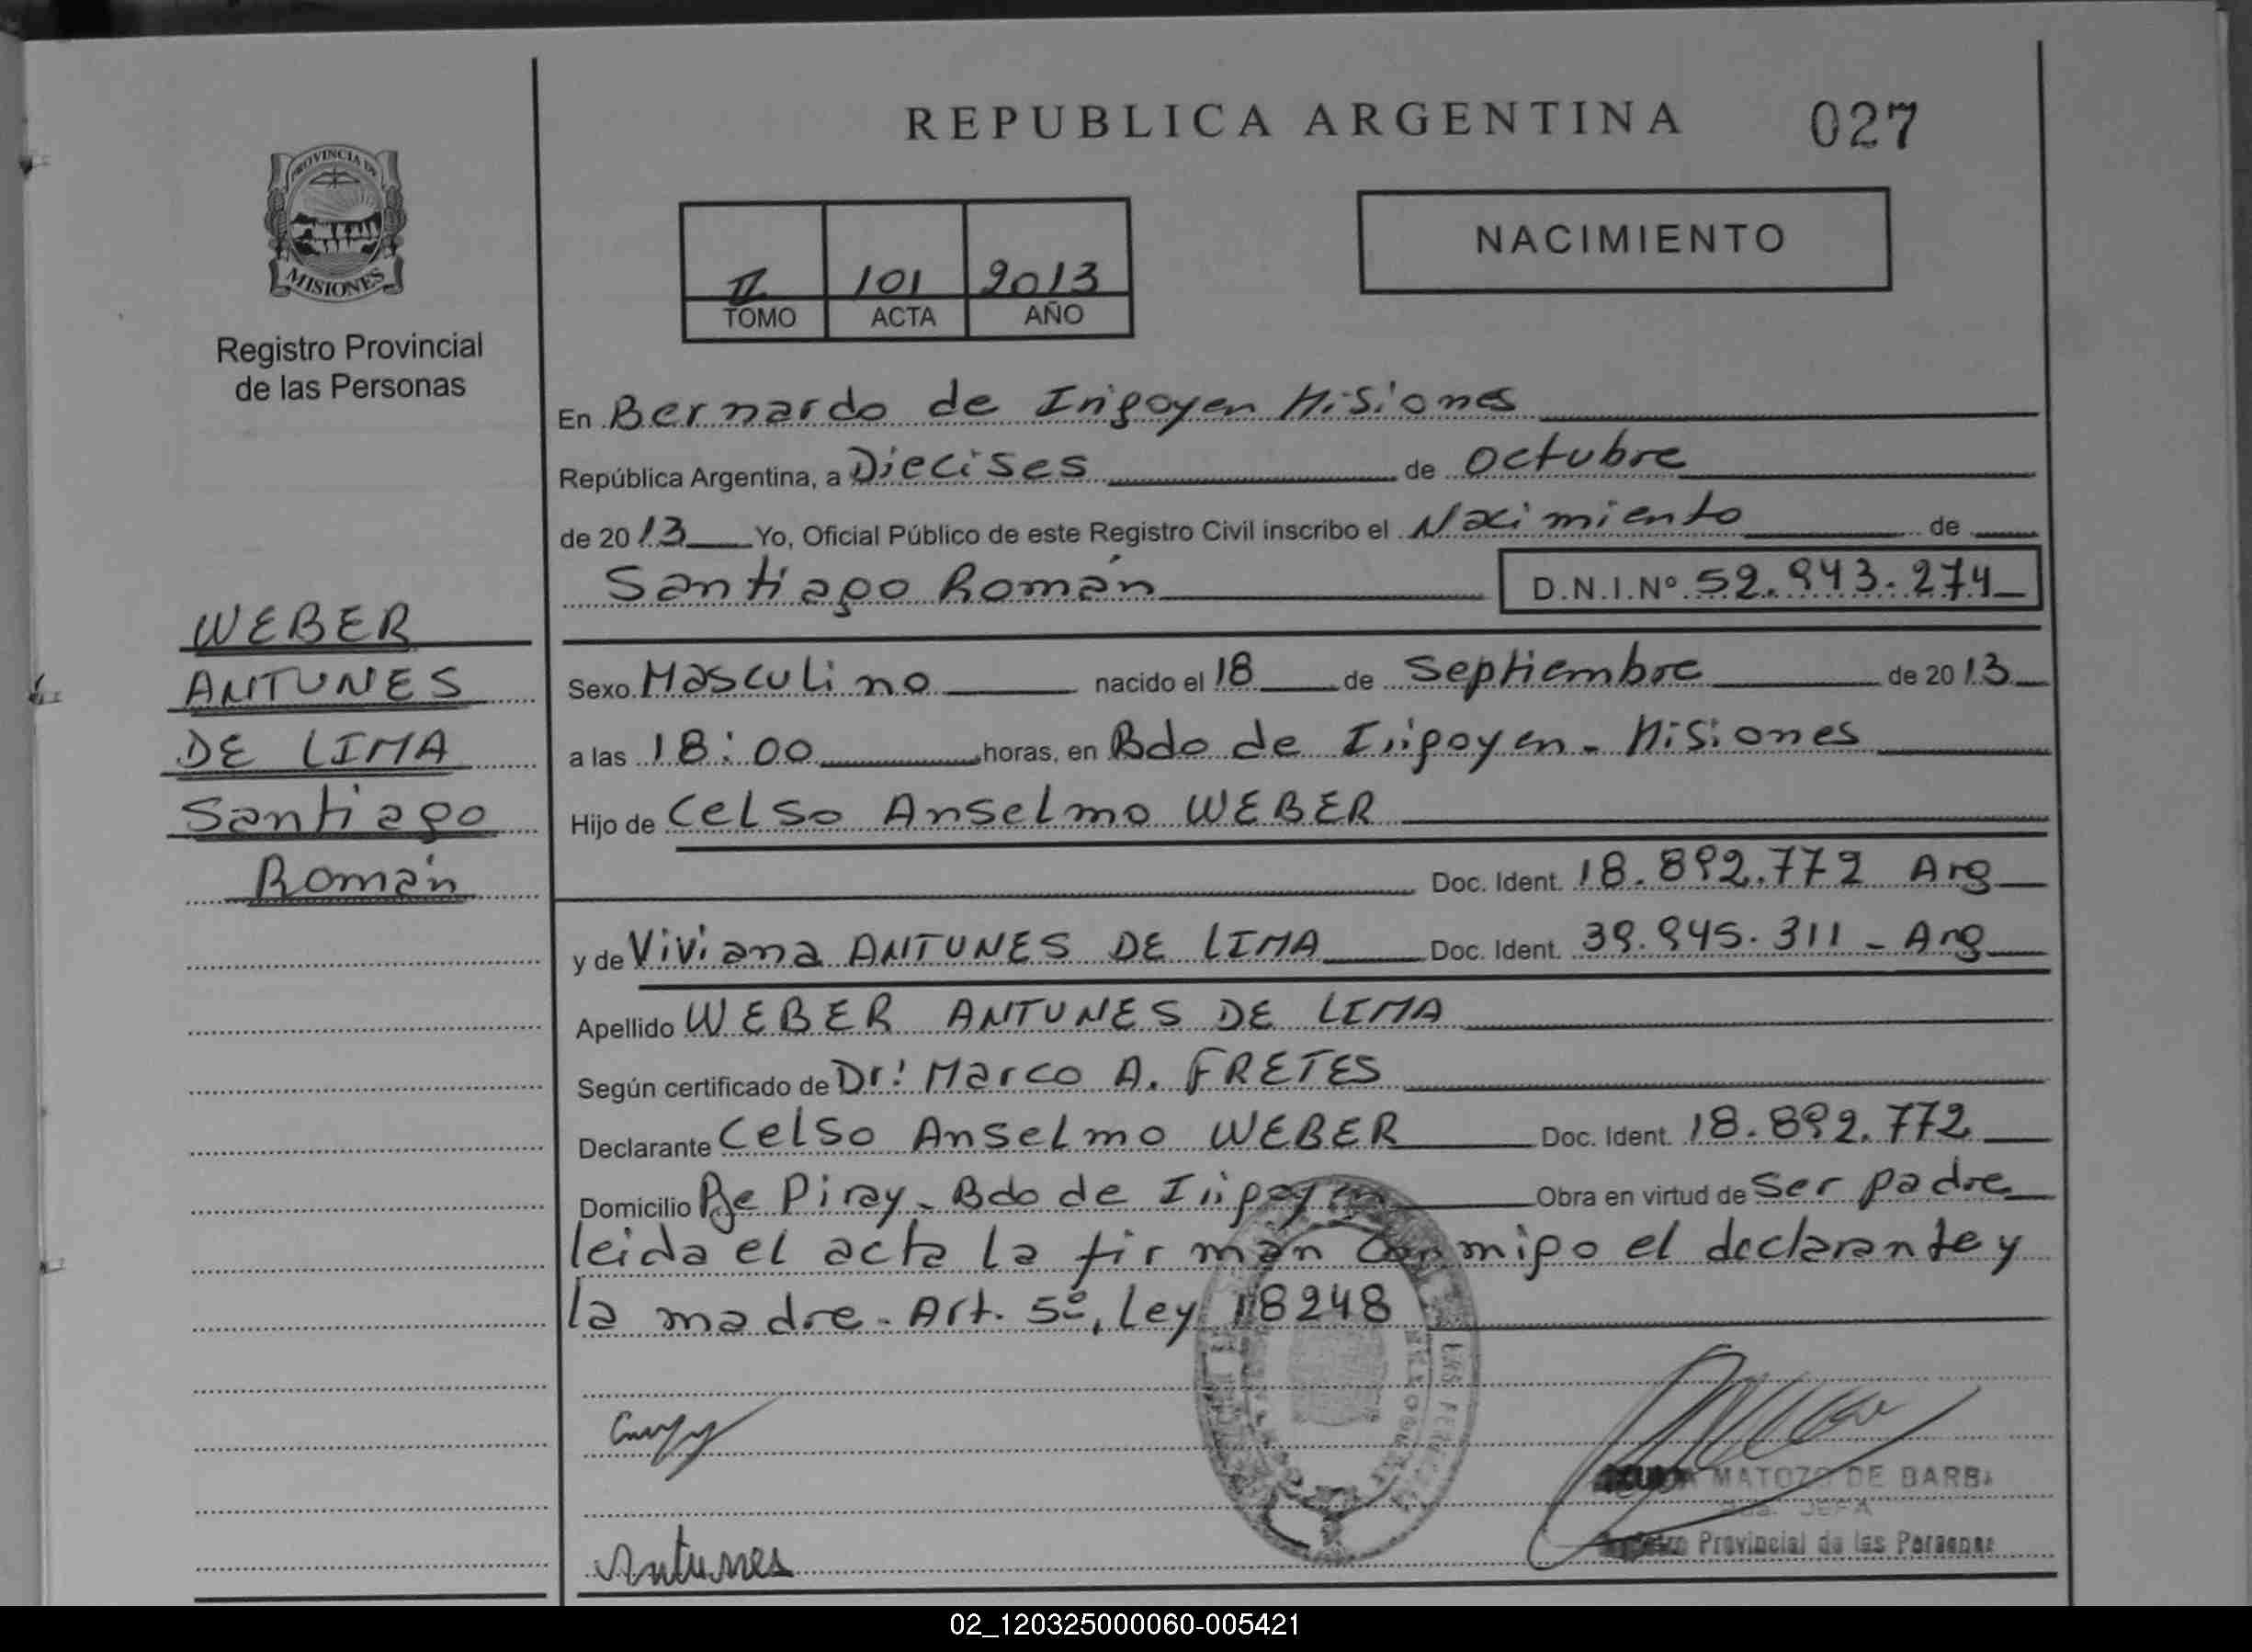 REPUBLICA ARGENTINA
027
PROVINCIA DE
MISIONES
Registro Provincial
de las Personas
II 101 2013
TOMO ACTA AÑO
NACIMIENTO
En Bernardo de Irigoyen Misiones
República Argentina, a Diecises de Octubre
de 2013 Yo, Oficial Público de este Registro Civil inscribo el Nacimiento de
Santiago Román D.N.I.Nº 52.943.274
WEBER
ANTUNES
DE LIMA
Santiago
Román
Sexo Masculino nacido el 18 de Septiembre de 2013
a las 18:00 horas, en Bdo de Irigoyen - Misiones
Hijo de Celso Anselmo WEBER
Doc. Ident. 18.892.772 Arg
y de Viviana ANTUNES DE LIMA Doc. Ident. 39.945.311 - Arg
Apellido WEBER ANTUNES DE LIMA
Según certificado de Dr: Marco A. FRETES
Declarante Celso Anselmo WEBER Doc. Ident. 18.892.772
Domicilio Pje Piray - Bdo de Irigoyen Obra en virtud de Ser padre
leida el acta la firman conmigo el declarante y
la madre - Art. 5º, Ley 18248
MATOZO DE BARB
JEFA
Provincial de las Personas
Antunes
02_120325000060-005421